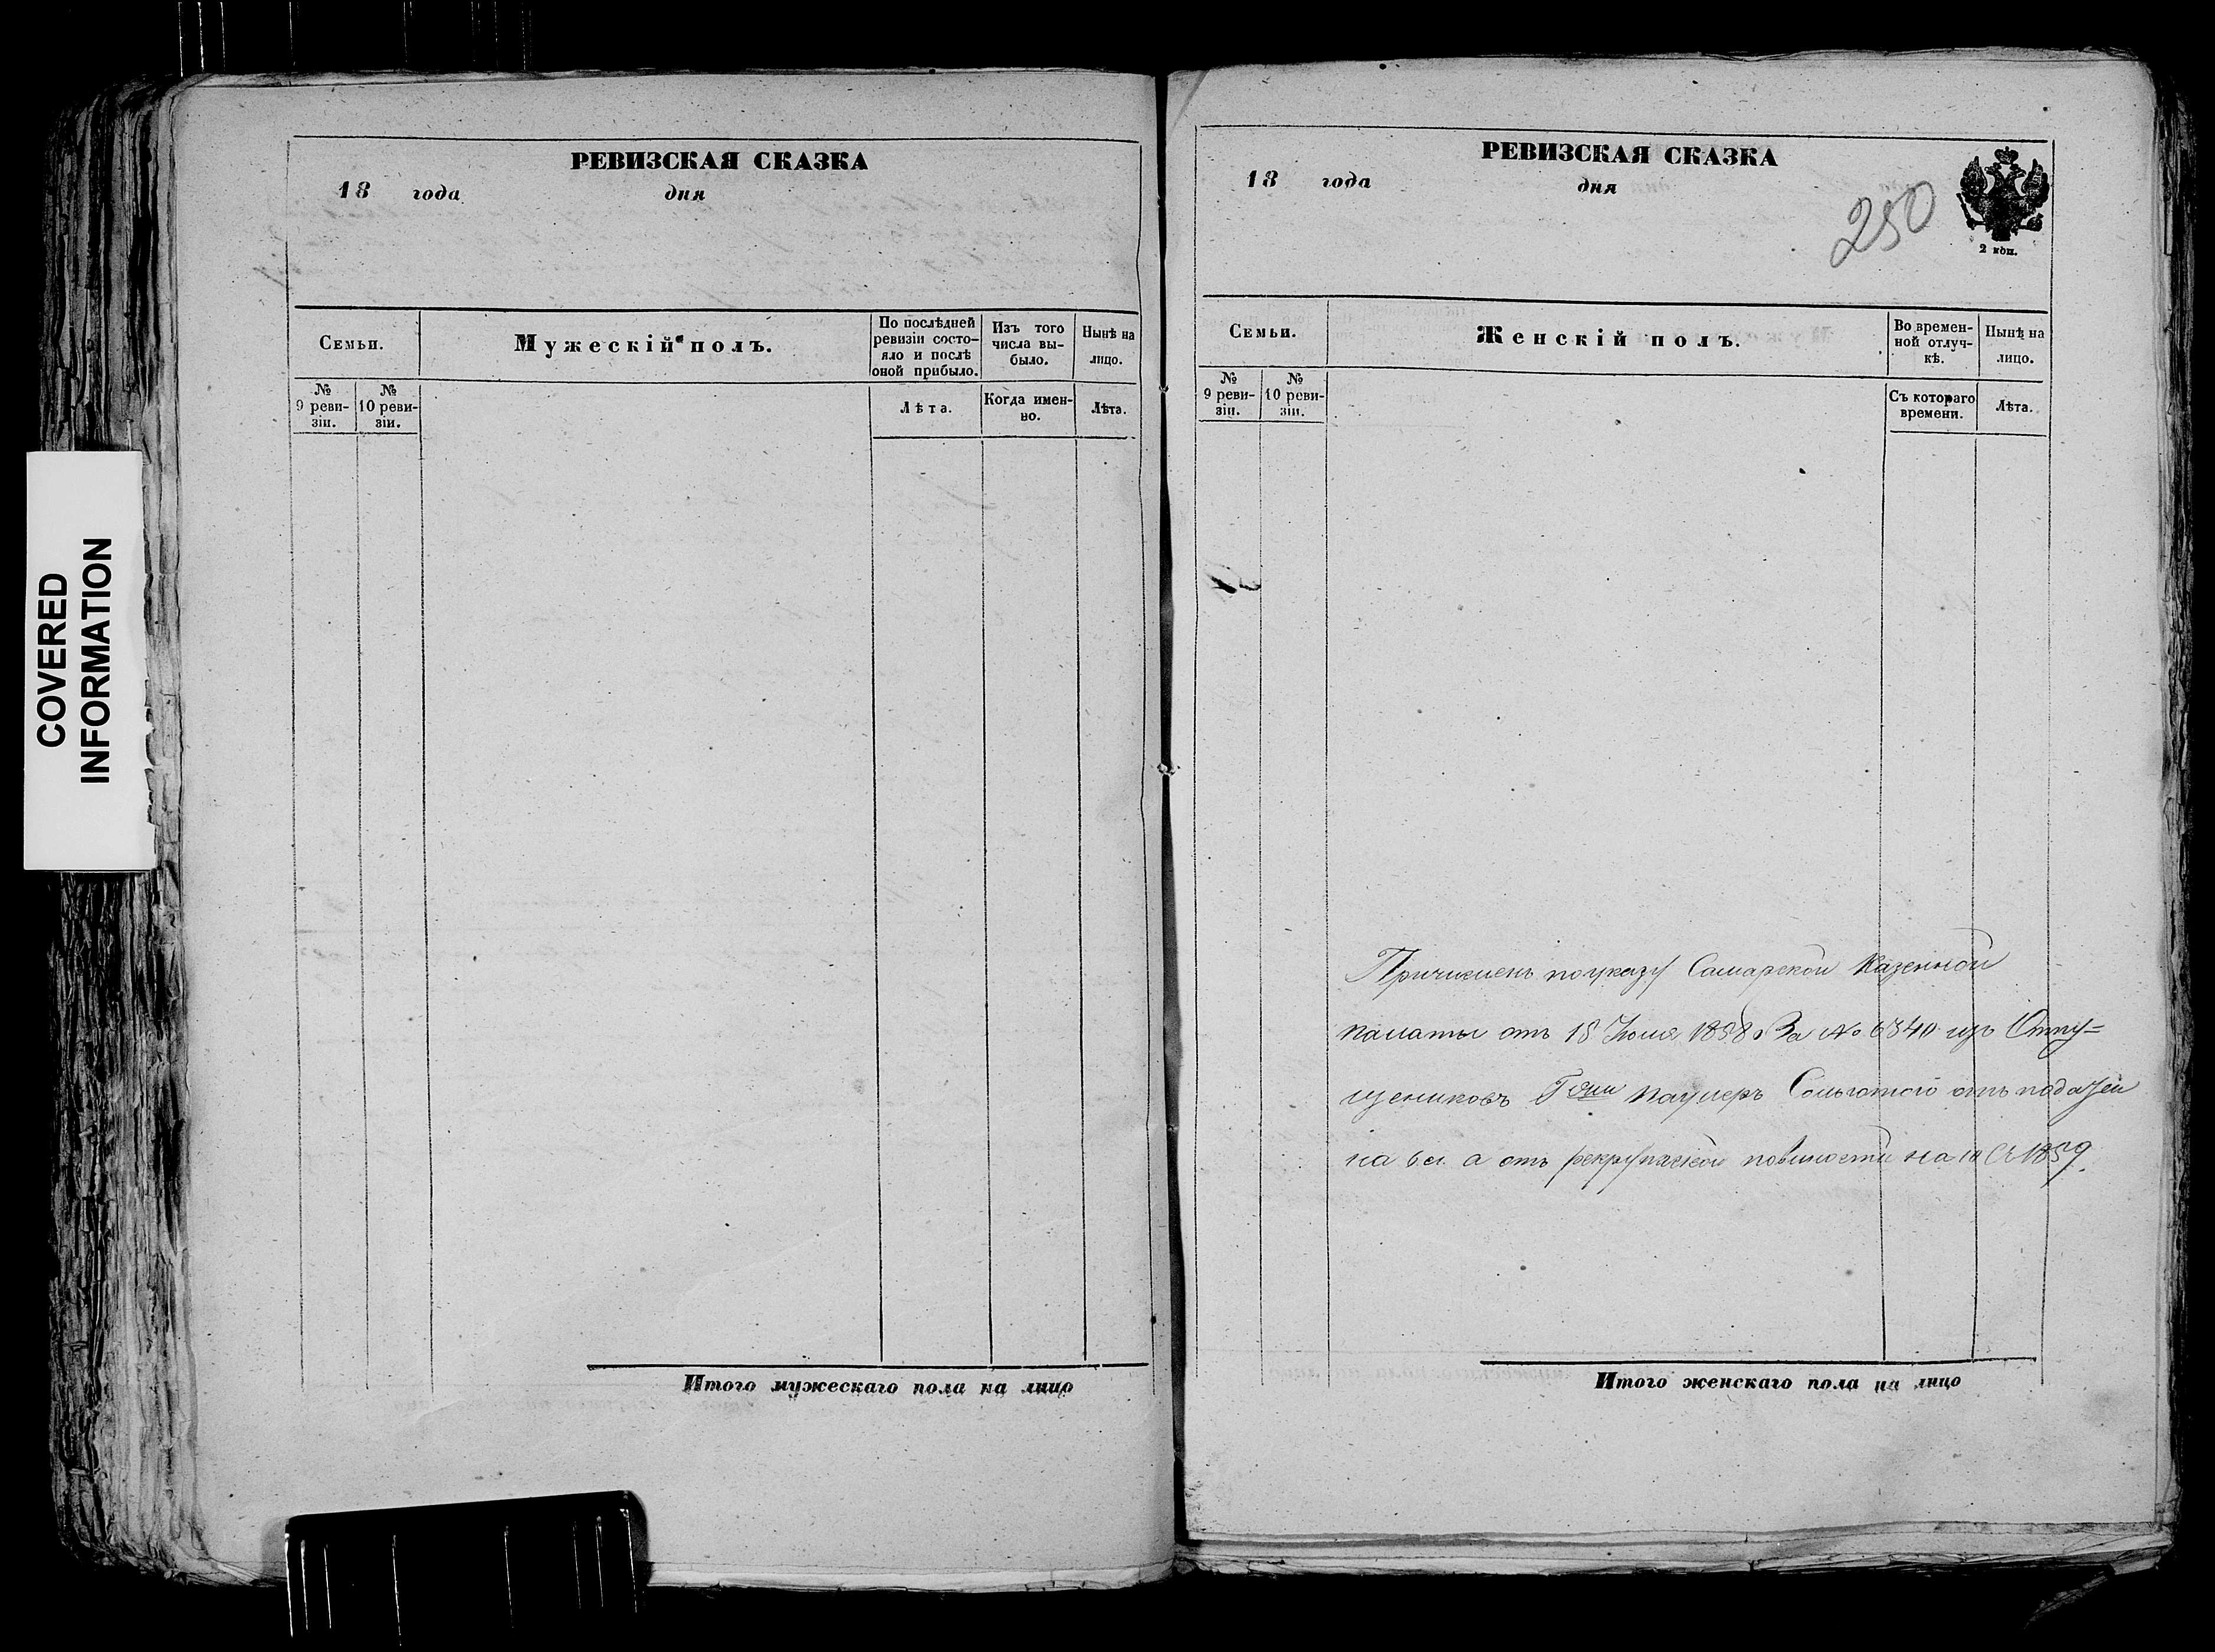 COVERED
INFORMATION
РЕВИЗСКАЯ СКАЗКА
18 года дня
Семьи.
Мужескій полъ.
По послѣдней
ревизіи состо-
яло и послѣ
оной прибыло.
Изъ того
числа вы-
было.
Нынѣ на
лицо.
№
9 реви-
зіи.
№
10 реви-
зіи.
Лѣта.
Когда имен-
но.
Лѣта.
Итого мужескаго пола на лицо
РЕВИЗСКАЯ СКАЗКА
18 года дня
250
2 коп.
Семьи.
Женскій полъ.
Во времен-
ной отлуч-
кѣ.
Нынѣ на
лицо.
№
9 реви-
зіи.
№
10 реви-
зіи.
Съ котораго
времени.
Лѣта.
Причисленъ по указу Самарской Казенной
палаты отъ 18 1858 За № 6340 изъ Отпу=
щениковъ Гжи отъ податей
на 6 л. а отъ рекрутской повиности на 1859.
Итого женскаго пола на лицо